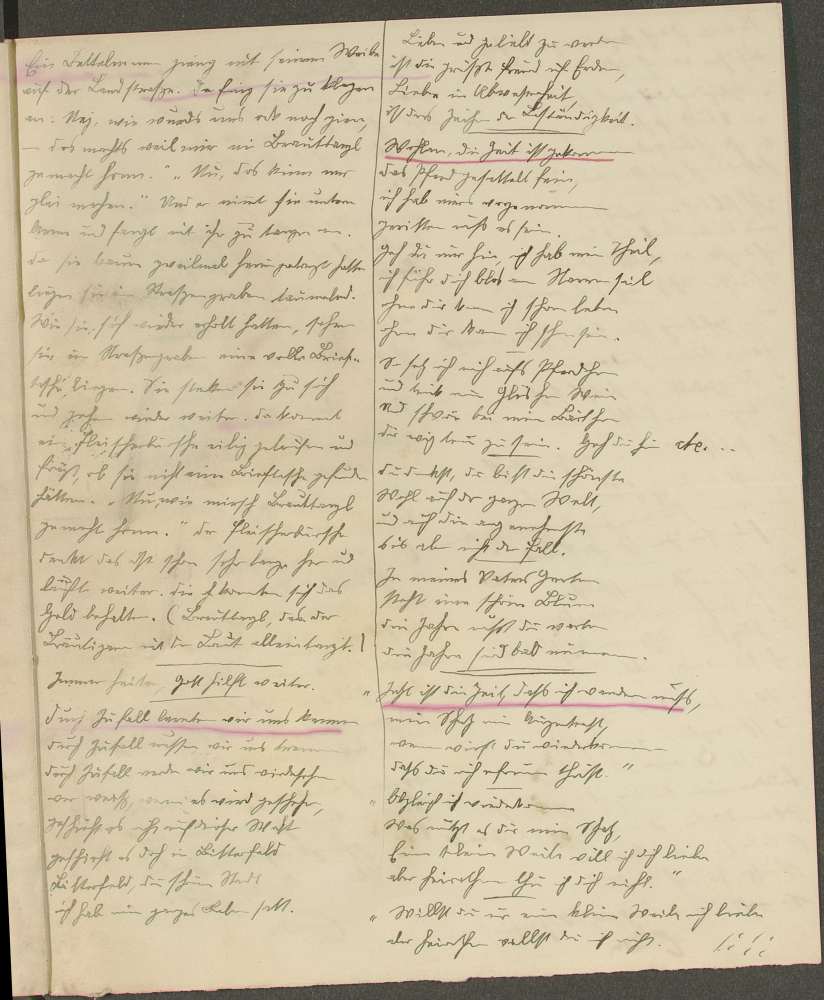 Ein Bettelmann gieng mit seinem Weibe
auf der Landstrasze. Da fing sie zu klagen
an: Naj, wie wurds uns ock noch gien,
– dos machts weil mir ni Brauttanzl
gemacht honn." „Nu, dos kinn mer
glei machen." Und er nimt sie untern
Arm und fangt mit ihr zu tanzen an.
Da sie kaum zweimal herumgetanzt hatten
liegen sie im Straszengraben taumelnd.
Wie sie sich wieder erholt hatten, sehen
sie im Straszengraben eine volle Brief-
tasche liegen. Sie stecken sie zu sich
und gehen wieder weiter. Da kommt
ein Fleischerbursche eilig gelaufen und
frägt, ob sie nicht eine Brieftasche gefunden
hätten. „Nu, wie mirsch Brauttanzl
gemacht honn." Der Fleischerbursche
denkt das ist schon sehr lange her und
läuft weiter. Die konnten sich das
Geld behalten. (Brauttanzl, den der
Bräutigam mit der Braut allein tanzt.)
Immer heiter, Gott hilft weiter.
Durch Zufall lernten wir uns kennen
durch Zufall mussten wir uns trennen
durch Zufall werden wir uns wiedersehn
wer weisz, wenn es wird geschehn,
geschieht es nicht auf dieser Welt
geschieht es doch in Bitterfeld
Bitterfeld, du schöne Stadt
ich hab mein ganzes Leben satt.
Lieben und geliebt zu werden
ist die gröszte Freud auf Erden,
Liebe in Abwesenheit,
ist das Zeichen der Beständigkeit.
Wohlan, die Zeit ist gekommen
das Pferd gesattelt sein,
ich hab mirs vorgenommen
geritten musz es sein.
Geh du nur hin, ich hab mein Theil,
ich führ dich blos am Narrenseil
ohne dir kann ich schon leben
ohne dir kann ich schon sein.
So setz ich mich aufs Pferdchen
und trink ein Gläschen Wein
und schwör bei mein Bärtchen
dir ewig treu zu sein. Geh du hin etc. ...
Du denkst, du bist die schönste
Wohl auf der ganzen Welt,
und auch die angenehmste
bis aber nicht der Fall.
In meines Vaters Garten
steht eine schöne Blum
drei Jahre muszt du warten
drei Jahre sind bald um.
„Jetzt ist die Zeit, dasz ich wandern musz,
mein Schatz mein Augentrost,
wann wirst du wiederkommen
dasz du mich erfreuen thust."
„Obgleich ich wiederkomme
Was nützt es dir mein Schatz,
Eine kleine Weile will ich dich lieben
aber heirathen thu ich dich nicht."
„Willst du nur eine kleine Weile mich lieben
aber heirathen willst du mich nicht.